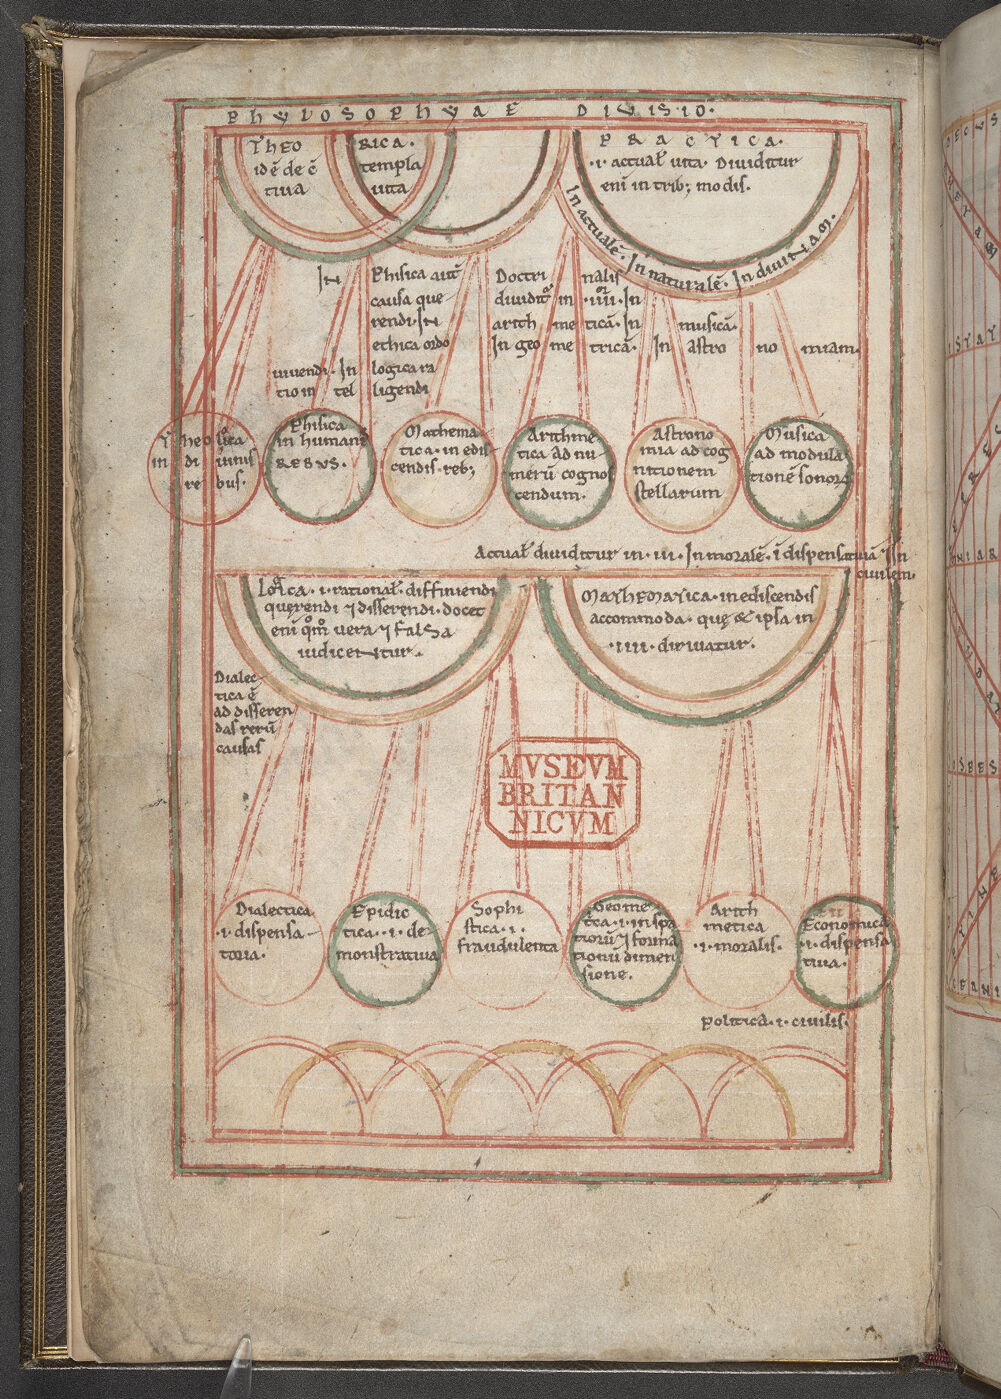 PHYLOSOPHYAE DIVISIO.
THEO RICA.
idē de c̄ templa
tiua uita
PRACTICA.
.i. actual̄ uita. Diuiditur
eni in trib; modis.
In actualē. In naturalē. In diuinam.
IN Phisica aut̄
causa que
rendi. IN
ethica ordo
uiuendi. In logica ra
tio in tel ligendi
Doctri nalis
diuidit in .iiii. In
arith me ticā. In musicā.
In geo me tricā. In astro no miam.
Theo lo ica
in di uinis
re bus.
Phisica
in humanis
REBUS.
Mathema
tica. in edis
cendis. reb;
Arithme
tica ad nu
merū cogno
scendum.
Astrono
mia ad cog
nitionem
stellarum
Musica
ad modula
tionē sonorū
Actual̄ diuiditur in .iii. In moralē. i dispensatiuā In
ciuilem.
Logica .i. rational̄. diffiniendi
querendi ⁊ disserendi. docet
eni qm̄ uera ⁊ falsa
iudicentur.
MATHEMATICA. in ediscendis
accommoda. quę & ipsa in
.iiii. diriuatur.
Dialec
tica ē
ad disseren
das rerū
causas
MVSEVM
BRITAN
NICVM
Dialectica
.i. dispensa
toria.
Epidic
tica. .i. de
monstratiua
Sophi
stica .i.
fraudulenta
Geome
tica .i. in spa
tiorū ⁊ forma
tionū dimen
sione.
Arith
metica
.i. moralis.
Economica
.i. dispensa
tiua.
politica .i. ciuilis.